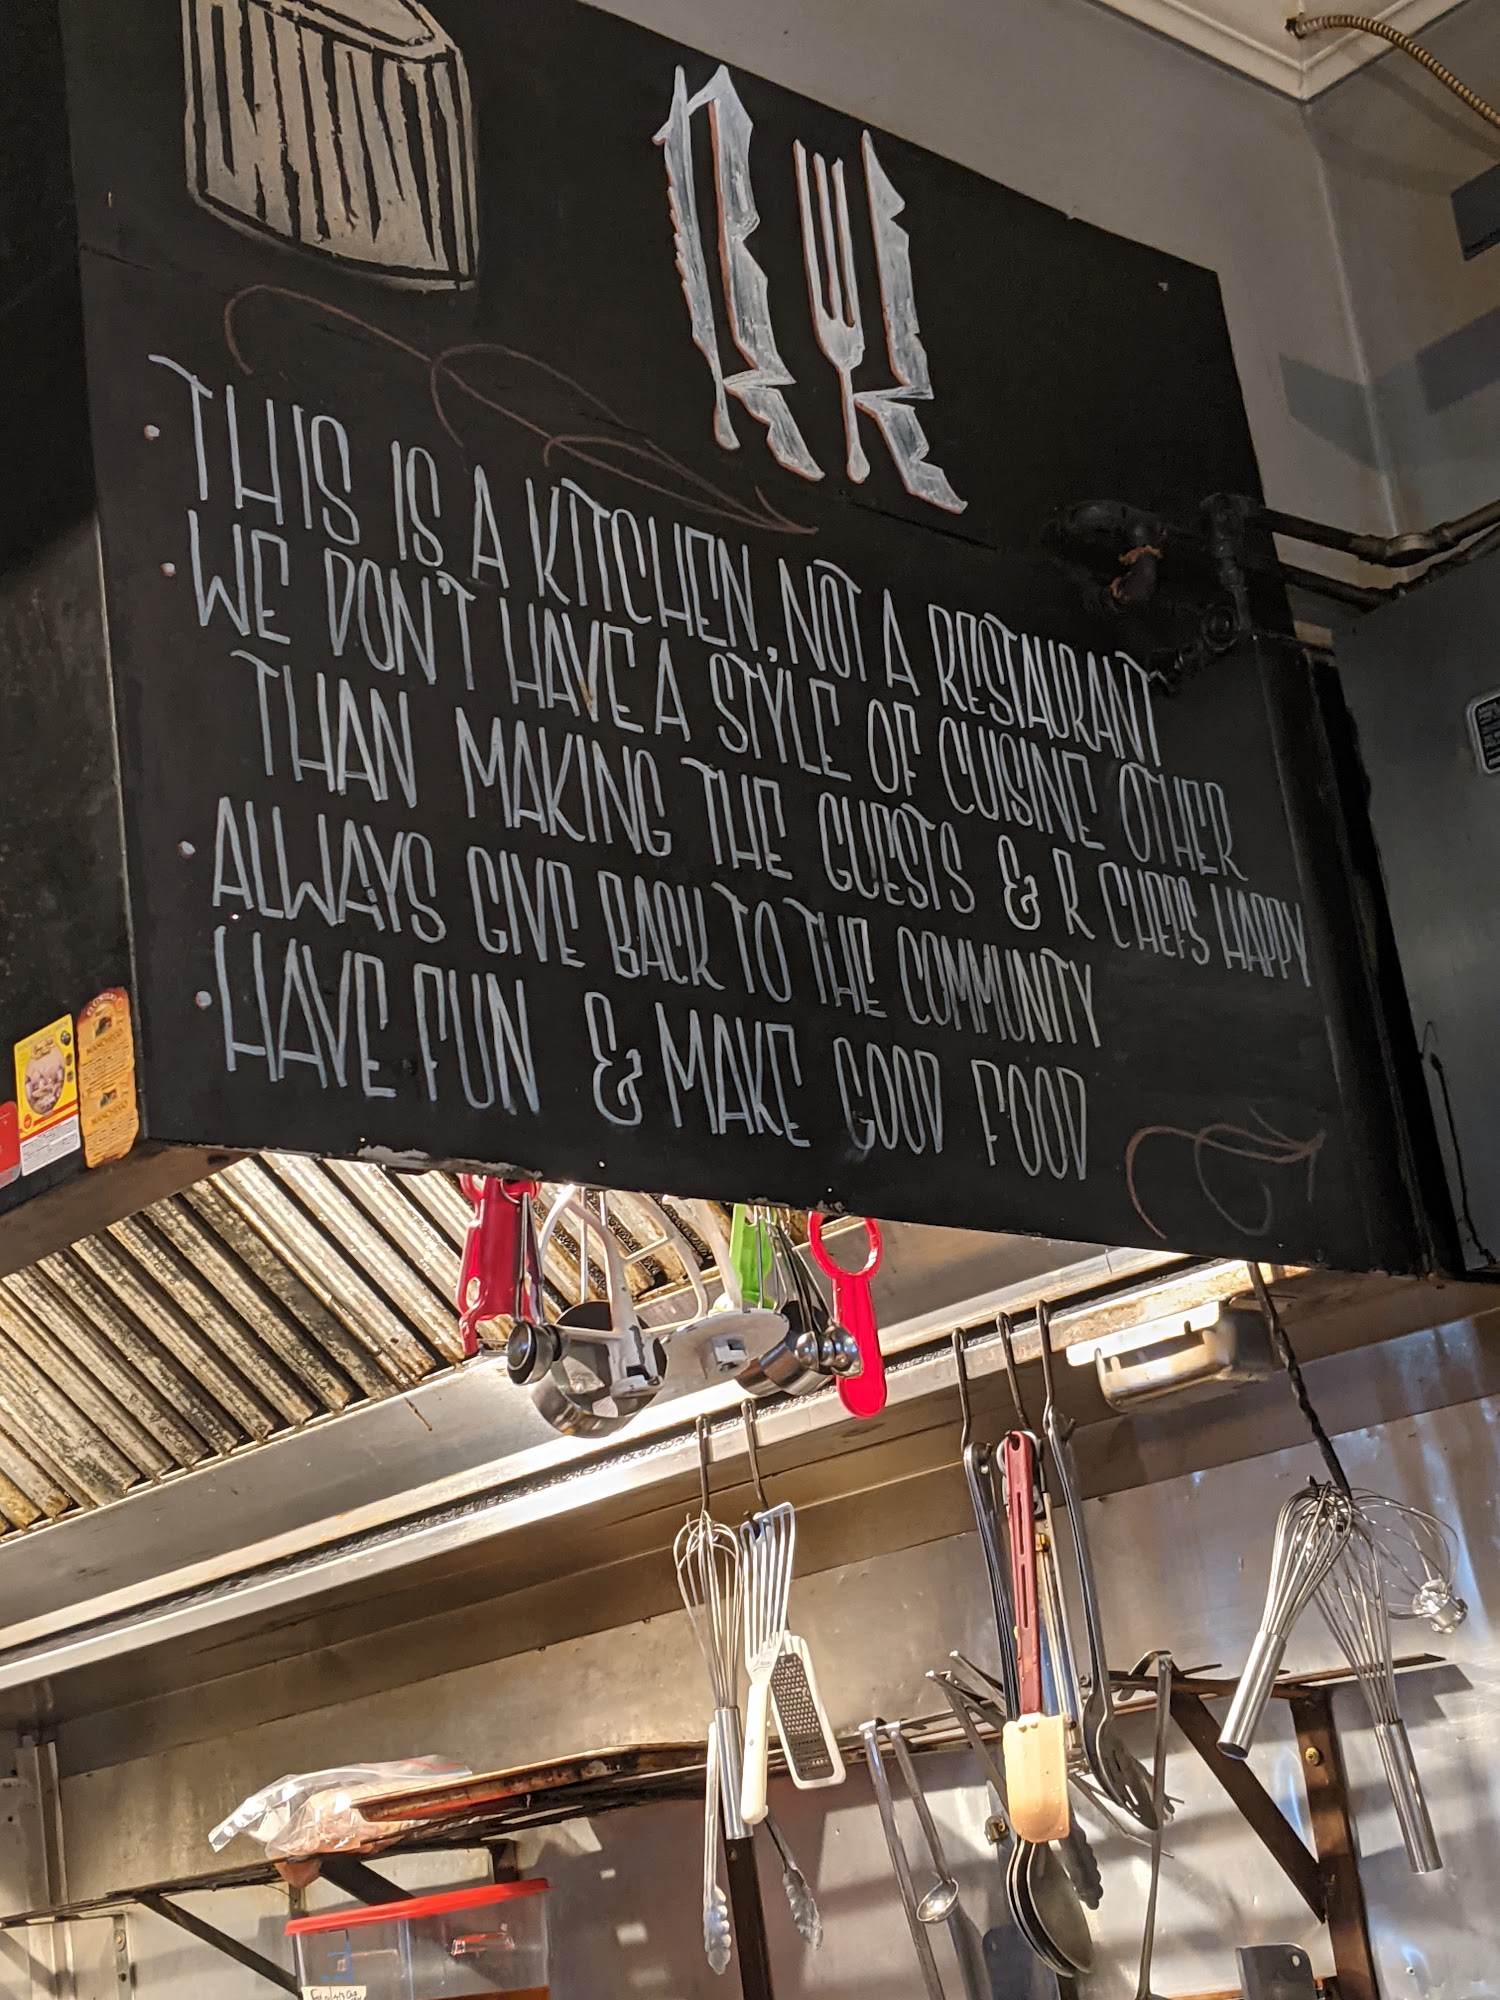 RK
• THIS IS A KITCHEN, NOT A RESTAURANT
• WE DON'T HAVE A STYLE OF CUISINE OTHER
THAN MAKING THE GUESTS & R CHEFS HAPPY
• ALWAYS GIVE BACK TO THE COMMUNITY
• HAVE FUN & MAKE GOOD FOOD
MANCHEGO
MANCHEGO